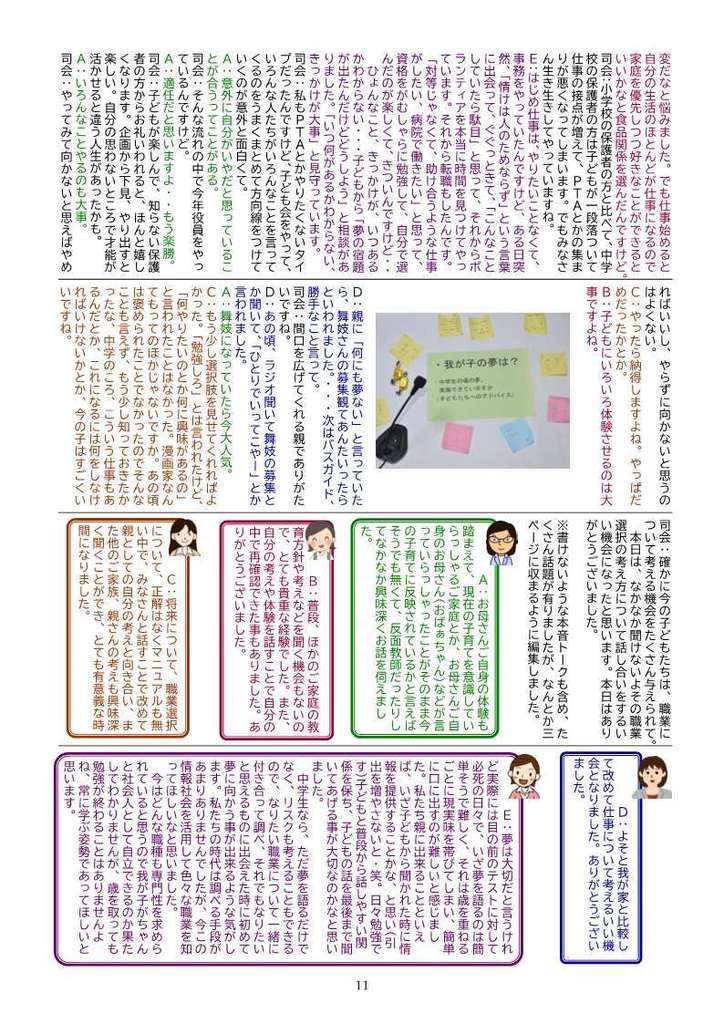 変だなと悩みました。でも仕事始めると
自分の生活のほとんどが仕事になるので
家庭を優先しつつ好きなことができると
いいかなと食品関係を選んだんですけど。
司会:小学校の保護者の方と比べて、中学
校の保護者の方は子どもが一段落ついて
仕事の接点が増えて、PTAとかの集ま
りが悪くなってしまいます。でもみなさ
ん生き生きしてやっていますね。
E:はじめ仕事は、やりたいことなくて、
事務をやっていたんですけど、ある日突
然、「情けは人のためならず」という言葉
に出会って、ぐぐっときて、「こんなこと
していたら駄目」と思って、それからボ
ランティアを本当に時間を見つけてやっ
ています。それから転職もしたんです。
「対等じゃなくて、助け合うような仕事
がしたい、病院で働きたい」と思って、
資格をがむしゃらに勉強して、自分で選
んだのが楽しくて、きついんですけど・・
ひょんなこと、きっかけが、いつある
かわからない・・子どもから「夢の宿題
が出たんだけどどうしよう」と相談があ
りました。「いつ何があるかわからない、
きっかけが大事」と見守っています。
司会:私もPTAとかやりたくないタイ
プだったんですけど、子ども会をやって、
いろんな人たちがいろんなことを言って
くるのをうまくまとめて方向線をつけて
いくのが意外と面白くて。
A:意外に自分がいやだと思っているこ
とが合うってことがある。
司会:そんな流れの中で今年役員をやっ
ているんですけど。
A:適任だと思いますよ・・もう楽勝。
司会:子どもが楽しんで、知らない保護
者の方からお礼いわれると、ほんと嬉し
くなります。企画から下見、やり出すと
楽しい。自分の思わないところで才能が
活かせると違う人生があったかも。
A:いろんなことやるのも大事。
司会:やってみて向かないと思えばやめ
ればいいし、やらずに向かないと思うの
はよくない。
C:やったら納得しますよね。やっぱだ
めだったかとか。
B:子どもにいろいろ体験させるのは大
事ですよね。
・我が子の夢は?
・中学生の頃の夢、
実現できていますか
(子どもたちへのアドバイス)
D:親に「何にも夢ない」と言っていた
ら、舞妓さんの募集観てあんたいったら
といわれました。・・次はバスガイド、
勝手なこと言って。
司会:間口を広げてくれる親でありがた
いですね。
D:あの頃、ラジオ聞いて舞妓の募集と
か聞いて、「ひとりでいってこやー」とか
言われました。
A:舞妓になっていたら今大人気。
C:もう少し選択肢を見せてくれればよ
かった。「勉強しろ」とは言われたけど、
「何やりたいのとか何に興味があるの」
と言われたことはなかった。漫画家なん
てもってのほかじゃないですか。あの頃
は褒められたことでなかったのでそんな
ことも言えず、もう少し知っておきたか
ったな、中学のころ、こういう仕事もあ
るんだとか、これになるには何をしなけ
ればいけないかとか、今の子はすごくい
いですね。
司会:確かに今の子どもたちは、職業に
ついて考える機会をたくさん与えられて。
本日は、なかなか聞けないよその職業
選択の考え方について話し合いをするい
い機会になったと思います。本日はあり
がとうございました。
※書けないような本音トークも含め、た
くさん話題が有りましたが、なんとか三
ページに収まるように編集しました。
A:お母さんご自身の体験も
踏まえて、現在の子育てを意識してい
らっしゃるご家庭とか、お母さんご自
身のお母さん(おばぁちゃん)などが言
っていらっしゃったことがそのまま今
の子育てに反映されているかと言えば
そうでも無くて、反面教師だったりし
てなかなか興味深くお話を伺えまし
た。
B:普段、ほかのご家庭の教
育方針や考えなどを聞く機会もないの
で、とても貴重な経験でした。また、
自分の考えや体験を話すことで自分の
中で再確認できた事もありました。あ
りがとうございました。
C:将来について、職業選択
について、正解はなくマニュアルも無
い中で、みなさんと話すことで改めて
親としての自分の考えと向き合い、ま
た他のご家族、親さんの考えも興味深
く聞くことができ、とても有意義な時
間になりました。
D:よそと我が家と比較し
て改めて仕事について考えるいい機
会となりました。ありがとうござい
ました。
E:夢は大切だと言うけれ
ど実際には目の前のテストに対して
必死の日々で、いざ夢を語るのは簡
単そうで難しく、それは歳を重ねる
ごとに現実味を帯びてしまい、簡単
に口に出すのが難しいと感じまし
た。私たち親に出来ることといえ
ば、いざ子どもから聞かれた時に情
報を提供することかな、と思い(引
出を増やさないと・笑。日々勉強で
す)子どもと普段から話しやすい関
係を保ち、子どもの話を最後まで聞
いてあげる事が大切なのかなと思い
ました。
中学生なら、ただ夢を語るだけで
なく、リスクも考えることもできる
ので、なりたい職業について一緒に
付き合って調べ、それでもなりたい
と思えるものに出会えた時に初めて
夢に向かう事が出来るような気がし
ます。私たちの時代は調べる手段が
あまりありませんでしたが、今この
情報社会を活用して色々な職業を知
ってほしいなと思いました。
今はどんな職種も専門性を求めら
れていると思うので我が子がちゃん
と社会人として自立できるのか果た
してわかりませんが、歳を取っても
勉強が終わることはありませんよ
ね、常に学ぶ姿勢であってほしいと
思います。
11